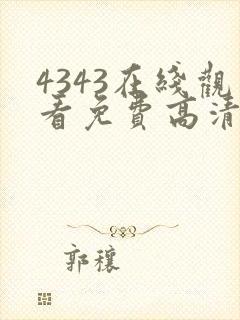 4343在綫觀
看免費高清
郭穰